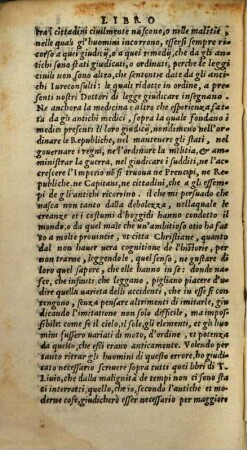 LIBRO
tra i cittadini ciuilmente nascono, o nelle malitie,
nelle quali gl'huomini incorrono, essersi sempre ri-
corso a quei giudicij, o a quei rimedij, che da gli an-
tichi sono stati giudicati, o ordinati, perche le leggi
ciuili non sono altro, che sententie date da gli anti-
chi Iureconsulti: le quali ridotte in ordine, a pre-
senti nostri Dottori di legge giudicare insegnano.
Ne anchora la medicina è altro che esperienza fat-
ta da gli antichi medici, sopra la quale fondano i
medici presenti li loro giudicij, nondimeno nell'or-
dinare le Republiche, nel mantenere gli stati, nel
gouernare i regni, nell'ordinar la militia, & am-
ministrar la guerra, nel giudicare i sudditi, ne l'ac-
crescere l'Imperio nō si truoua ne Prencepi, ne Re-
publiche, ne Capitani, ne cittadini, che a gli essem-
pi de gli antichi ricorrino. il che mi persuado che
nasca non tanto dalla debolezza, nellaquale le
creanze et i costumi d'hoggidi hanno condotto il
mondo, o da quel male che un'ambitioso otio ha fat-
to a molte prouincie, et città Christiane, quanto
dal non hauer uera cognitione de l'historie, per
non trarne, leggendole, quel senso, ne gustare di
loro quel sapore, che elle hanno in se: donde na-
sce, che infiniti, che leggono, pigliano piacere d'u-
dire quella uarietà delli accidenti, che in esse si con-
tengono, senza pensare altrimenti di imitarle, giu-
dicando l'imitatione non solo difficile, ma impos-
sibile: come se il cielo, il sole, gli elementi, et gli huo-
mini fussero uariati di moto, d'ordine, et potenza
da quello, che essi erano anticamente. Volendo per
tanto ritrar gli huomini di questo errore, ho giudi-
cato necessario scriuere sopra tutti quei libri di T.
Liuio, che dalla malignità de tempi non ci sono sta
ti interrotti, quello, che io, secondo l'antiche et mo
derne cose, giudicherò esser necessario per maggiore